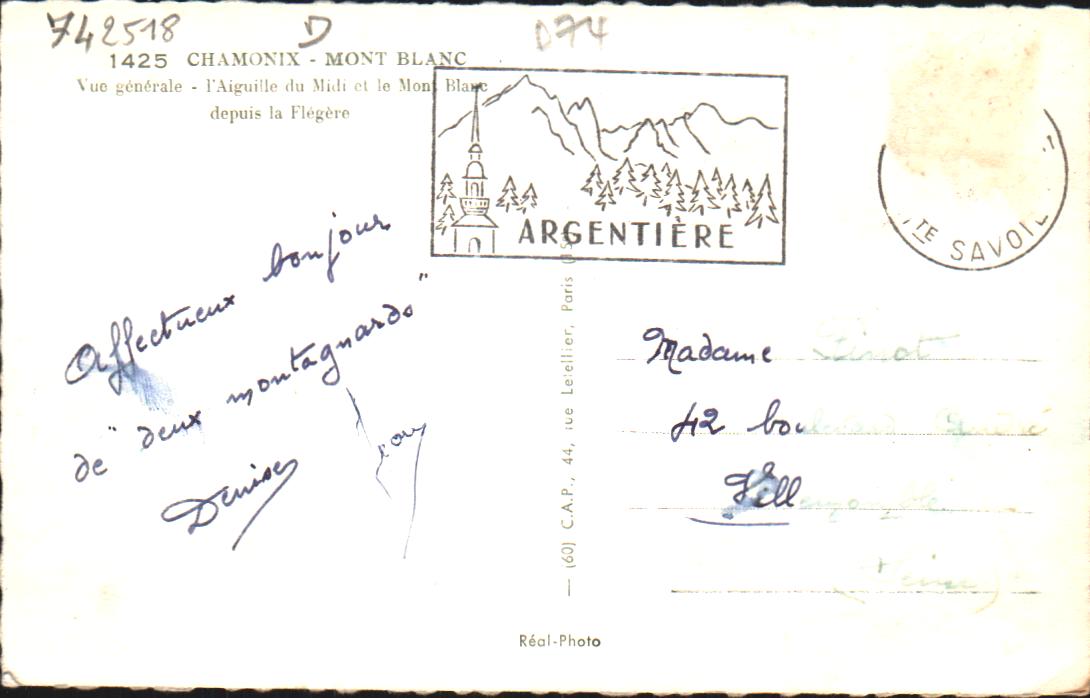 742518 D D74
1425 CHAMONIX - MONT BLANC
Vue générale - l'Aiguille du Midi et le Mont Blanc
depuis la Flégère
ARGENTIÈRE
TE SAVOIE
Affectueux bonjour
de "deux montagnards"
Denise
Madame
42 boulevard
Vill
(60) C.A.P., 44, rue Letellier, Paris
Réal-Photo